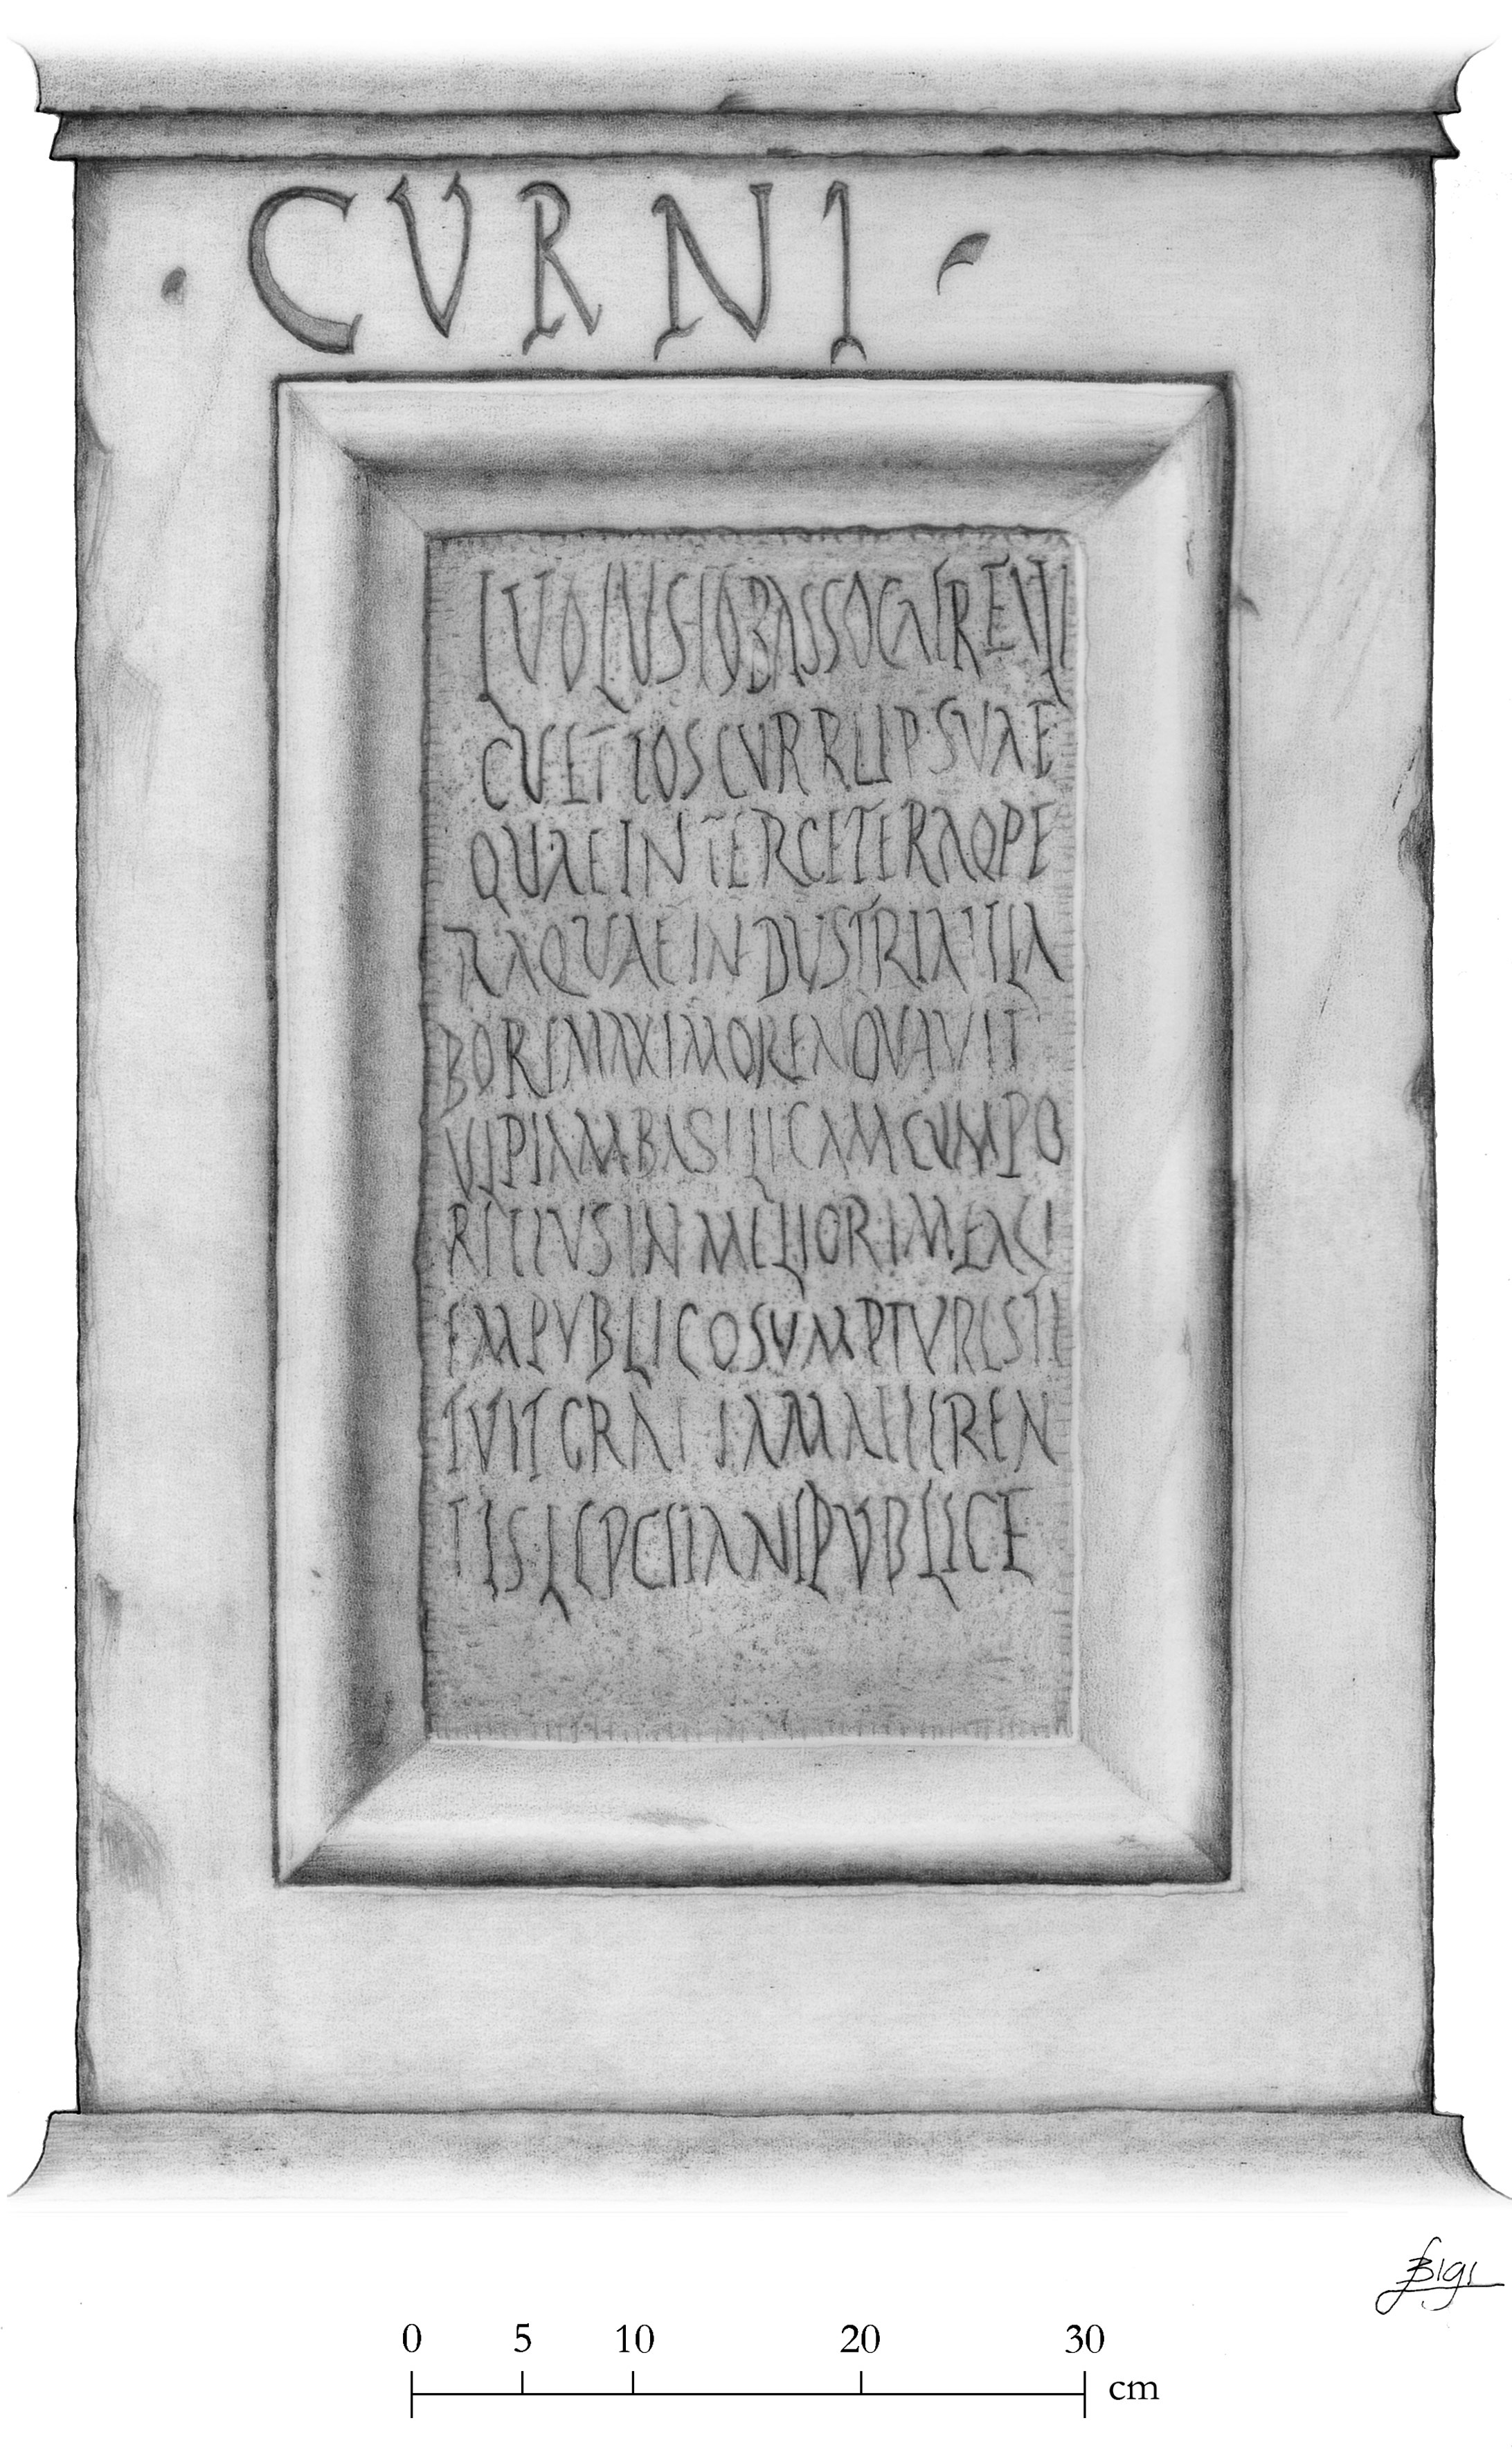 · CVRNI ·
LVOLUSIOBASSOGERENTI
CUETIOSCVRREIPSVAE
QUAEINTERCETERAOPE
RAQUAEINDUSTRIAETLA
BOREMAXIMORENOVAVIT
VLPIAMBASILICAMCVMPO
RTICVSINMELIOREMFACI
EMPVBLICOSVMPTVRESTI
TVITGRATIAMAFFEREN
TISLEPCITANIPVBLICE
Bigi
0 5 10 20 30 cm